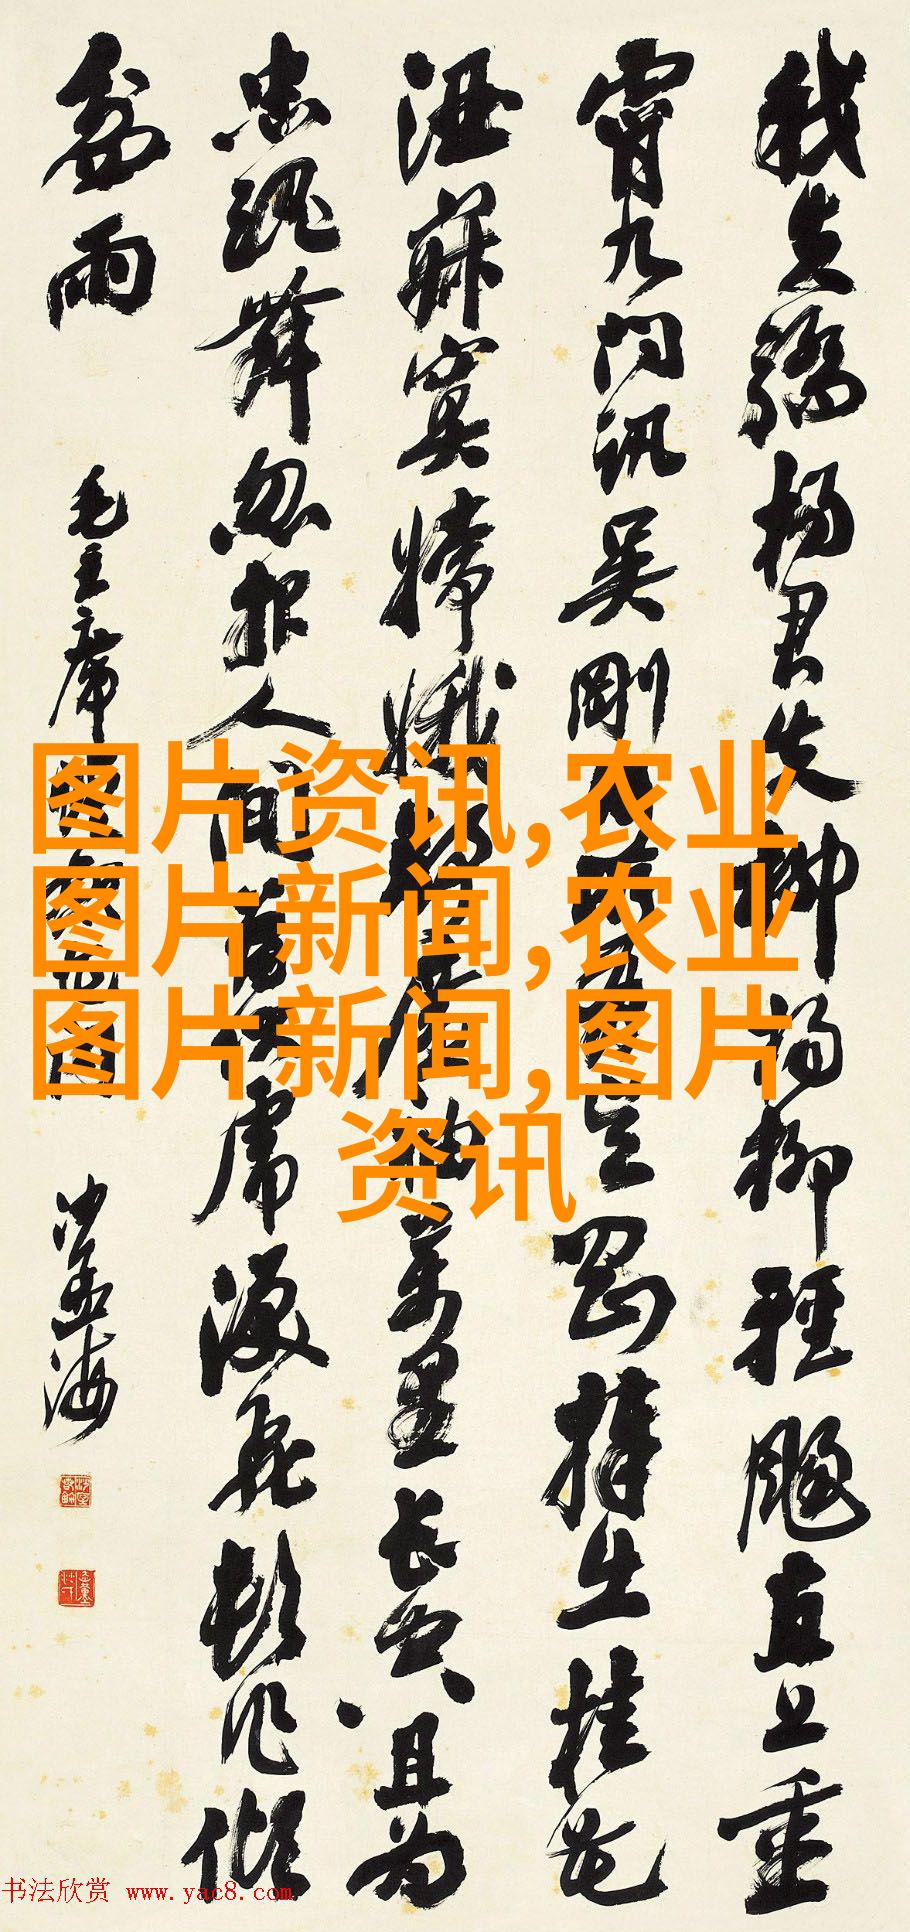 我失驕楊君失柳楊柳輕颺直上重
霄九問訊吳剛何所有吳剛捧出桂花
酒寂寞嫦娥舒廣袖萬里长空且为
忠魂舞忽报人间曾伏虎淚飛頓作傾
盆雨
毛主席
沙孟海
图片资讯,农业
图片新闻,农业
图片新闻,图片
资讯
书法欣赏 www.yac8.com